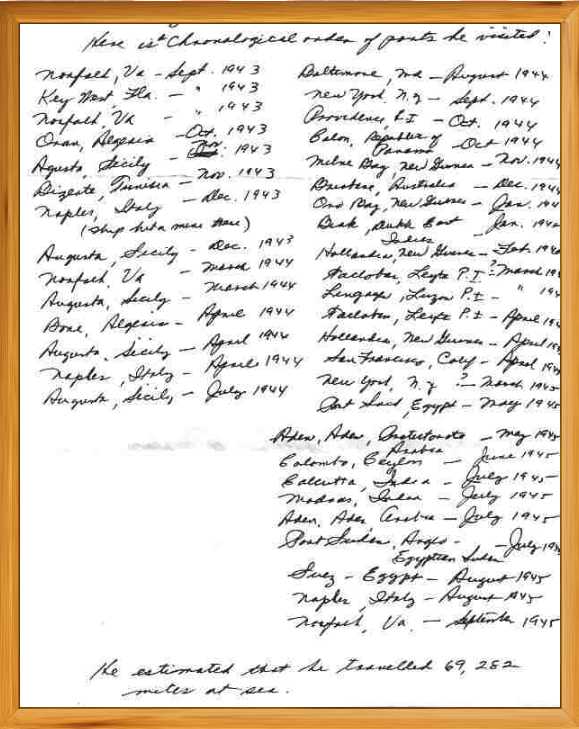 Here is a Chronological order of ports he visited:
Norfolk, Va - Sept. 1943
Key West, Fla. - " 1943
Norfolk, Va " 1943
Oran, Algeria - Oct. 1943
Agusta, Sicily - Nov. 1943
Bizerte, Tunisia - Nov. 1943
Naples, Italy - Dec. 1943
(ship hit a mine there)
Augusta, Sicily - Dec. 1943
Norfolk, Va - March 1944
Augusta, Sicily - March 1944
Bone, Algeria - April 1944
Augusta, Sicily - April 1944
Naples, Italy - April 1944
Augusta, Sicily - July 1944
Baltimore, Md - August 1944
New York, N.Y - Sept. 1944
Providence, R.I - Oct. 1944
Colon, Republic of
Panama - Oct 1944
Milne Bay, New Guinea - Nov. 1944
Brisbane, Australia - Dec.
Oro Bay, New Guinea - Jan.
Biak, Dutch East
Indies - Jan.
Hollandia, New Guinea - Feb.
Tacloban, Leyte P.I - March
Lingayen, Luzon P.I - "
Tacloban, Leyte P.I - April
Hollandia, New Guinea - April
San Francisco, Calif - April
New York, N.Y ? - March 1945
Port Said, Egypt - May 1945
Aden, Aden, Protectorate
Arabia - May 1945
Colombo, Ceylon - June 1945
Calcutta, India - July 1945
Madras, India - July 1945
Aden, Aden Arabia - July 1945
Port Sudan, Anglo -
Egyptian Sudan - July
Suez - Egypt - August 1945
Naples, Italy - August 1945
Norfolk, Va. - September 1945
He estimated that he travelled 69,282
miles at sea.